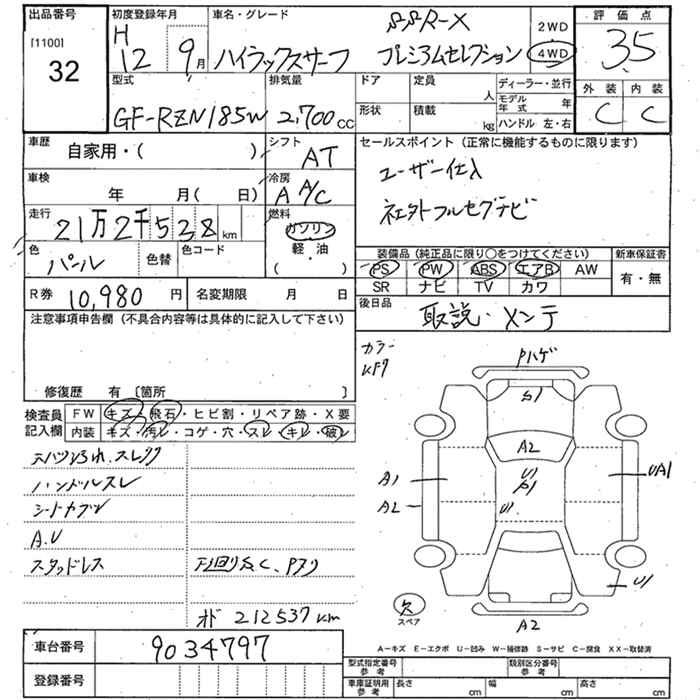 出品番号
[1100]
32
初度登録年月
H
12 9月
車名・グレード
SSR-X
ハイラックスサーフ プレミアムセレクション
2WD
4WD
評価点
3.5
外装 内装
C C
型式
GF-RZN185W
排気量
2,700cc
ドア
定員
人
形状
積載
kg
ディーラー・並行
モデル年式 年
ハンドル 左・右
車歴
自家用・( )
シフト
AT
セールスポイント(正常に機能するものに限ります)
ユーザー仕入
社外フルセグテビ
車検
年 月( 日)
冷房
A A/C
走行
21万2千528km
燃料
ガソリン
軽・油
( )
色
パール
色替
色コード
装備品(純正品に限り○をつけてください)
PS PW ABS エアB AW
SR ナビ TV カワ
新車保証書
有・無
R券
10,980円
名変期限 月 日
後日品
取説・メンテ
注意事項申告欄(不具合内容等は具体的に記入して下さい)
修復歴 有〔箇所 〕
カラー
検査員記入欄
FW キズ・飛石・ヒビ割・リペア跡・X要
内装 キズ・汚レ・コゲ・穴・スレ・キレ・破レ
ハンドルスレ
シートカブリ
A.U
スタッドレス
下回りサビ、Pスリ
オド 212537km
Pハゲ
S1
A2
U1
S1
U1
A1
A2
UA1
U1
欠
スペア
A2
A-キズ E-エクボ U-凹み W-補修跡 S-サビ C-腐食 XX-取替済
車台番号
9034797
登録番号
型式指定番号
参考
類別区分番号
参考
車庫証明用
参考
長さ cm
幅 cm
高さ cm